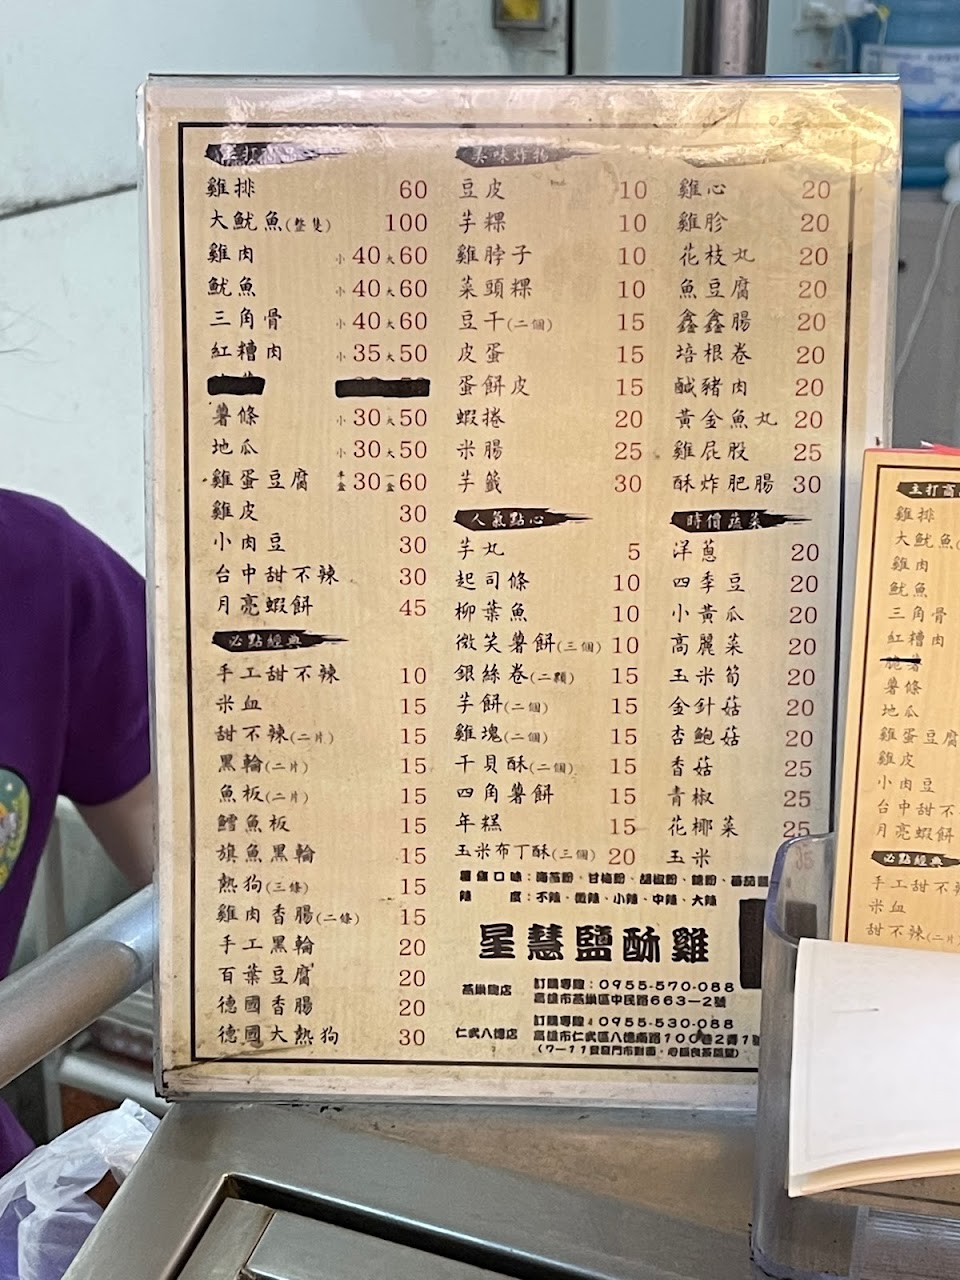 主打商品
雞排 60
大魷魚(整隻) 100
雞肉 小40大60
魷魚 小40大60
三角骨 小40大60
紅糟肉 小35大50
薯條 小30大50
地瓜 小30大50
雞蛋豆腐 半盒30一盒60
雞皮 30
小肉豆 30
台中甜不辣 30
月亮蝦餅 45
必點經典
手工甜不辣 10
米血 15
甜不辣(二片) 15
黑輪(二片) 15
魚板(二片) 15
鱈魚板 15
旗魚黑輪 15
熱狗(三條) 15
雞肉香腸(二條) 15
手工黑輪 20
百葉豆腐 20
德國香腸 20
德國大熱狗 30
美味炸物
豆皮 10
芋粿 10
雞脖子 10
菜頭粿 10
豆干(二個) 15
皮蛋 15
蛋餅皮 15
蝦捲 20
米腸 25
芋籤 30
人氣點心
芋丸 5
起司條 10
柳葉魚 10
微笑薯餅(三個) 10
銀絲卷(二顆) 15
芋餅(二個) 15
雞塊(二個) 15
干貝酥(二個) 15
四角薯餅 15
年糕 15
玉米布丁酥(三個) 20
雞心 20
雞胗 20
花枝丸 20
魚豆腐 20
鑫鑫腸 20
培根卷 20
鹹豬肉 20
黃金魚丸 20
雞屁股 25
酥炸肥腸 30
時價蔬菜
洋蔥 20
四季豆 20
小黃瓜 20
高麗菜 20
玉米筍 20
金針菇 20
杏鮑菇 20
香菇 25
青椒 25
花椰菜 25
玉米 35
薯條口味：海苔粉、甘梅粉、胡椒粉、糖粉、蕃茄醬
辣 度：不辣、微辣、小辣、中辣、大辣
星慧鹽酥雞
燕巢總店
訂購專線：0955-570-088
高雄市燕巢區中民路663-2號
仁武八德店
訂購專線：0955-530-088
高雄市仁武區八德南路100巷2弄1號
主打商
雞排
大魷魚
雞肉
魷魚
三角骨
紅糟肉
脆薯
薯條
地瓜
雞蛋豆腐
雞皮
小肉豆
台中甜不
月亮蝦餅
必點經典
手工甜不辣
米血
甜不辣(二片)